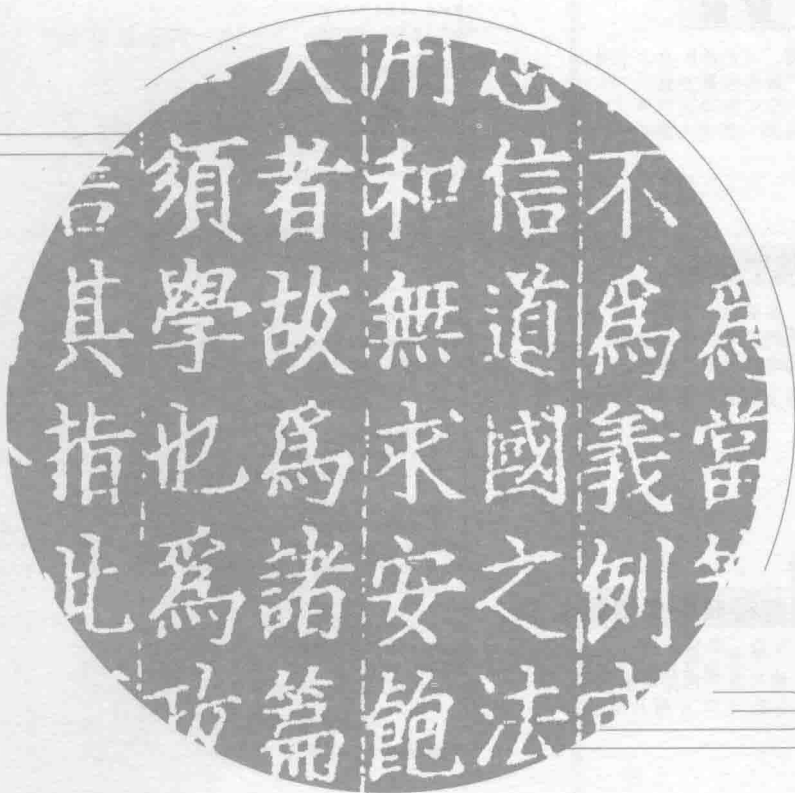 爲當
不爲義例或
忠信道國之法
用和無求安飽
大者故爲諸篇
須學也爲政
言其指此